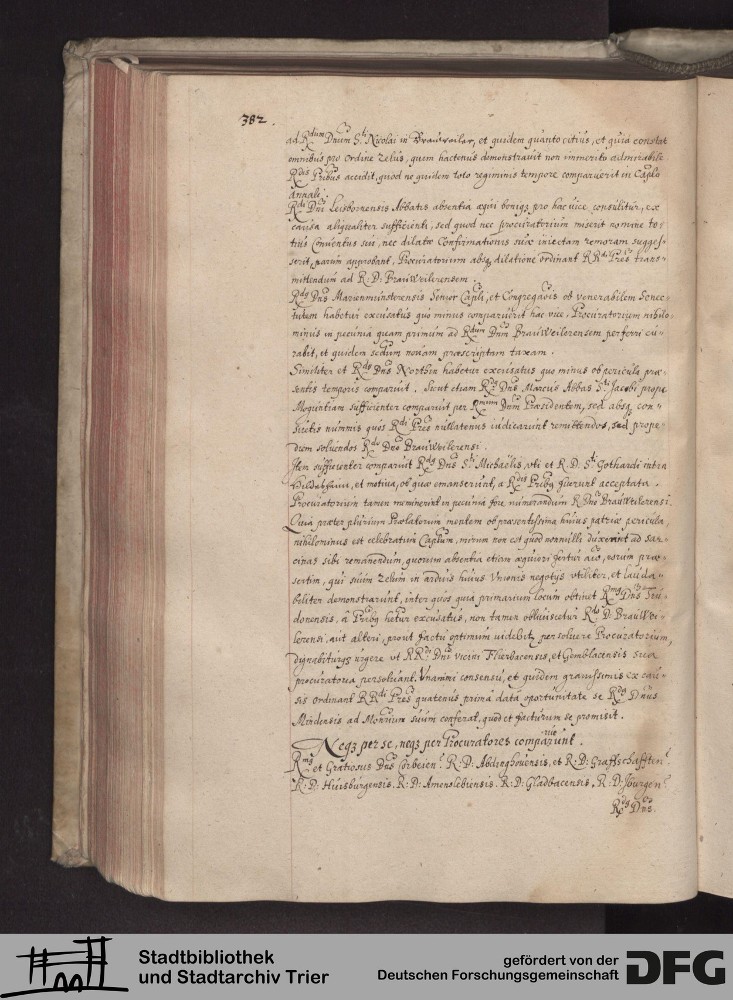 382.
ad R.dum Dnum S.ti Nicolai in Brauweiler, et quidem quanto citius, et quia constat
omnibus pro ordine zelus, quem hactenus demonstravit non immerito admirabile
R.dis P.ribus accidit, quod ne quidem toto regiminis tempore comparuerit in Caplo
Annali.
R.di Dni Leisbornensis Abbatis absentia aegre benigq pro hac vice consulitur, ex
causa aliqualiter sufficienti, sed quod nec procuratorium miserit nomine to-
tius Conventus sui, nec dilatae Confirmationis suae iniectam remoram sugges-
serit, parum approbant, Procuratorium absq dilatione ordinant RR.di P.res trans-
mittendum ad R: D: Brauweilerensem.
R.dq Dnus Marienmunsterensis Senior Capli, et Congregaois ob venerabilem Senec-
tutem habetur excusatus quo minus comparuerit hac vice, Procuratorium nihilo-
minus in pecunia quam primum ad R.dum Dnum BrauWeilerensem perferri cu-
rabit, et quidem secdum novam praescriptam taxam.
Similiter et R.dq Dnus Northen habetur excusatus quo minus ob pericula prae-
sentis temporis comparuit. Sicut etiam R.dq Dnus Marcus Abbas S.ti Jacobi prope
Moguntiam sufficienter comparuit per R.mum Dnum Praesidentem, sed absq con-
suetis nummis quos R.di P.res nullatenus iudicarunt remittendos, sed prope-
diem solvendos R.do Dno BrauWeilerensi.
Iten sufficienter comparuit R.dq Dnus S.ti Michaelis, uti et R. D. S.ti Gothardi intra
Hildeshaim, et motiva, ob quae emanserunt, a R.dis P.ribq fuerunt acceptata.
Procuratorium tamen meminerint in pecunia fore numerandum R. Dno BrauWeilerensi.
Quia praeter plurium Praelatorum mentem ob praesentissima huius patriae pericula,
nihilominus est celebratum Caplum, mirum non est quod nonnulli duxerint ad sar-
cinas sibi remanendum, quorum absentia etiam aequiori fertur aio, eorum prae-
sertim, qui suum zelum in arduis huius Unionis negotys utiliter, et lauda-
biliter demonstrarunt, inter quos quia primarium locum obtinet R.mq Dnus Tru-
donensis, a P.ribq hetur excusatus, non tamen obliviscetur R.do D: BrauWei-
lerensi, aut alteri, prout factu optimum videbitur persolvere Procuratorium,
dignabiturq urgere ut RR.di Dni vicini Florbacensis, et Gemblacensis sua
procuratoria persolvant. Unanimi consensu, et quidem gravissimis ex cau-
sis ordinant RR.di P.res quatenus prima data oportunitate se R.dq Dnus
Mindensis ad Monrium suum conferat, quod et facturum se promisit.
Neqq per se, neqq per Procuratores comparuerunt.
R.mq et Gratiosus Dnus Corbeien. R: D: Abdinghovensis, et R: D: Graffschafften.
R: D: Huisburgensis. R: D: Amenslebiensis. R: D: Gladbacensis, R: D: Iburgen.
R.dq Dnus.
Stadtbibliothek
und Stadtarchiv Trier
gefördert von der
Deutschen Forschungsgemeinschaft
DFG